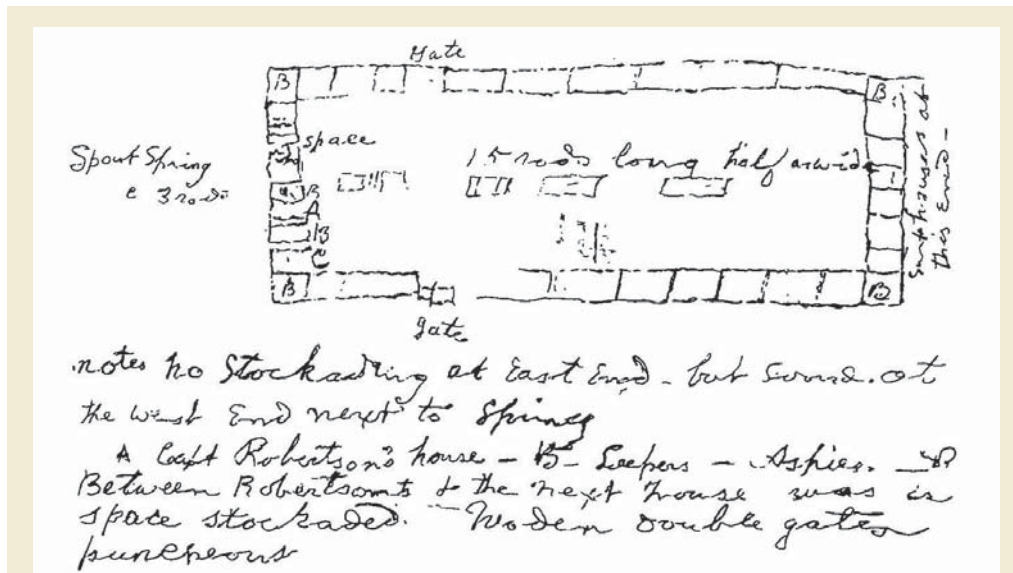 Gate
B
B
space
Spout Spring
15 rods long half as wide
3 rods
B
A
B
C
B
B
houses at
this End -
gate
notes no Stockading at East End - but some at
the west End next to Spring
A Capt Robertson's house - B -
Between Robertson's & the next house was a
space stockaded. Woden double gates
puncheons